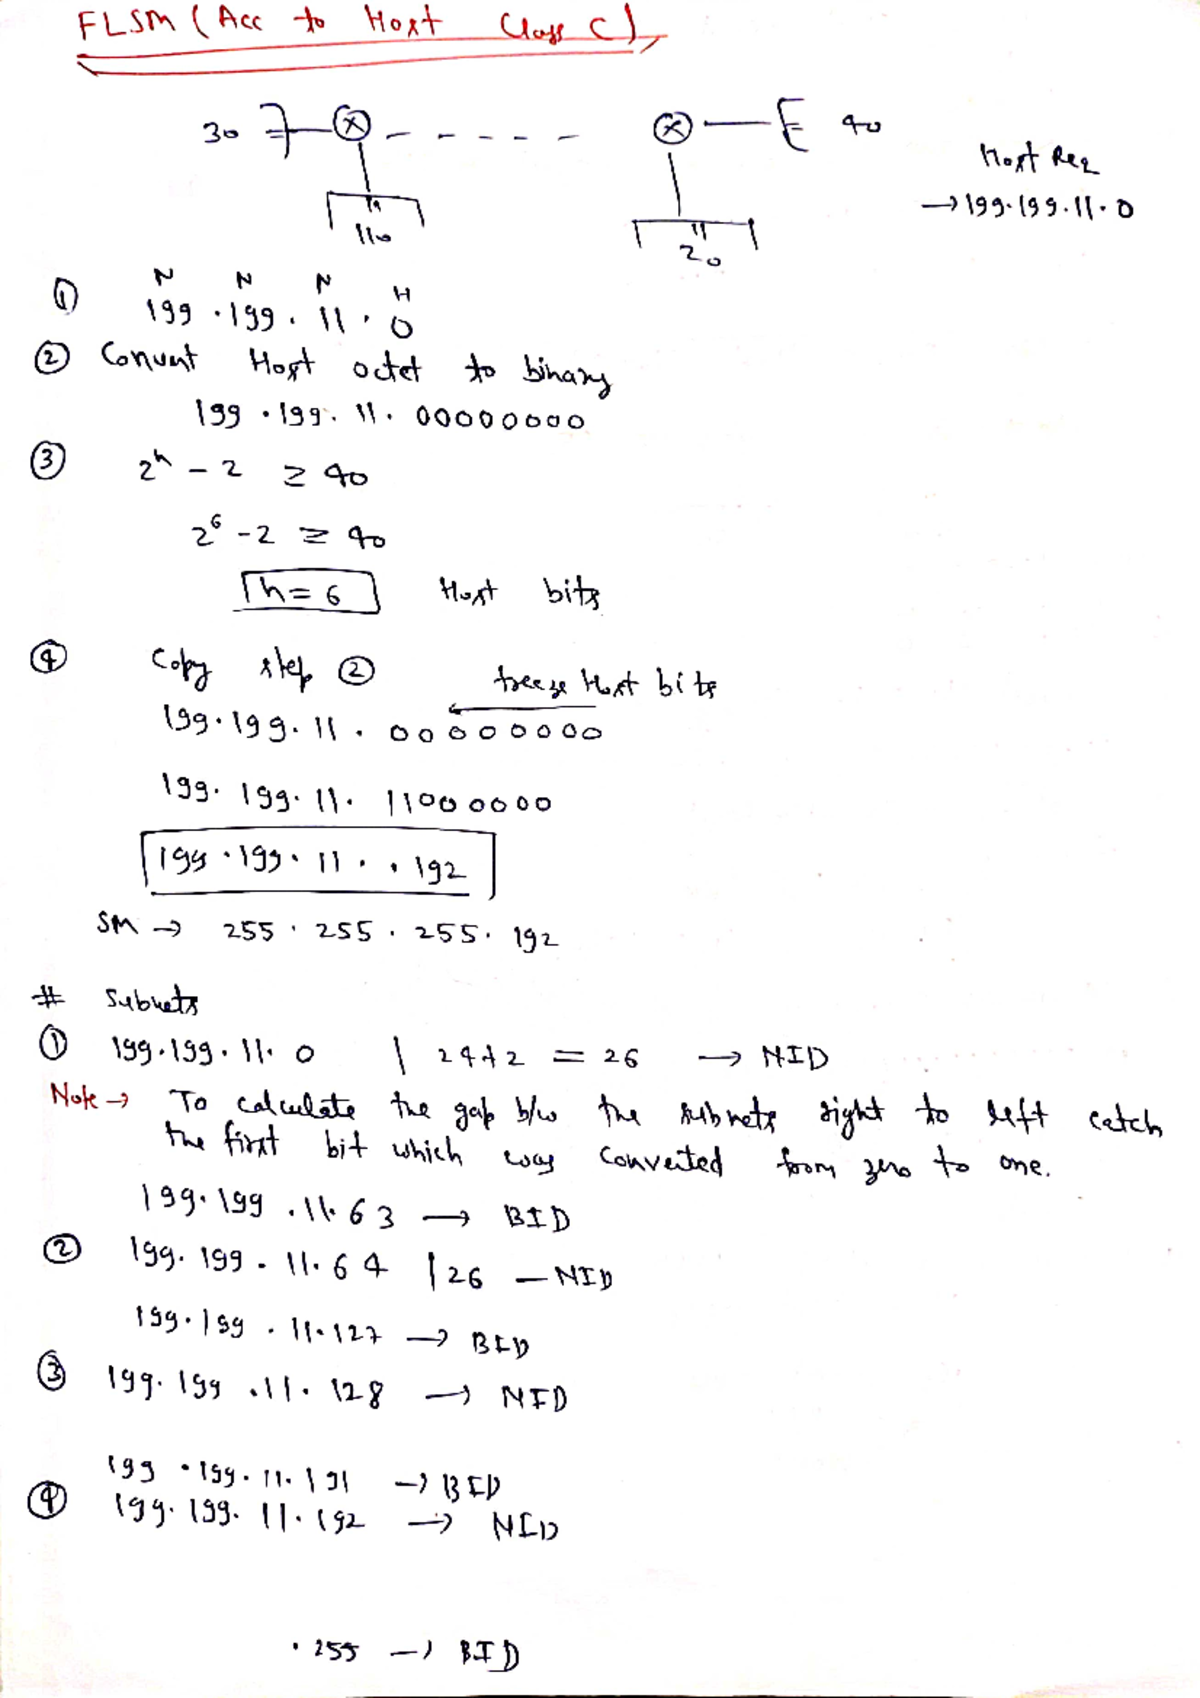 FLSM (Acc to Host Class C)
30 40
Host Req
→ 199.199.11.0
110 20
① N N N H
199 . 199 . 11 . 0
② Convert Host octet to binary
199 . 199 . 11 . 00000000
③ 2^h - 2 ≥ 40
2^6 - 2 ≥ 40
h = 6 Host bits
④ Copy step ②
freeze Host bits
199.199.11.00000000
199.199.11.11000000
199.199.11..192
SM → 255.255.255.192
# Subnets
① 199.199.11.0 | 24+2 = 26 → NID
Note → To calculate the gap b/w the subnets right to left catch
the first bit which was converted from zero to one.
199.199.11.63 → BID
② 199.199.11.64 | 26 — NID
199.199.11.127 → BID
③ 199.199.11.128 → NID
199.199.11.191 → BID
④ 199.199.11.192 → NID
.255 → BID